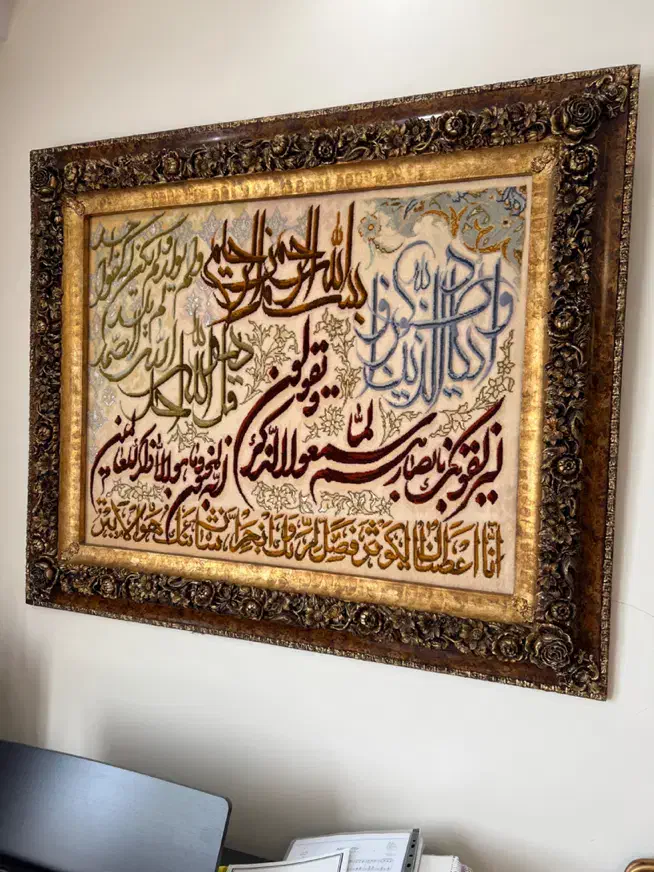 بسم الله الرحمن الرحيم
وان يكاد الذين كفروا
ليزلقونك بابصارهم لما سمعوا الذكر
ويقولون
انه لمجنون وما هو الا ذكر للعالمين
قل هو الله احد
الله الصمد
لم يلد
ولم يولد ولم يكن له كفوا احد
انا اعطيناك الكوثر فصل لربك وانحر ان شانئك هو الابتر